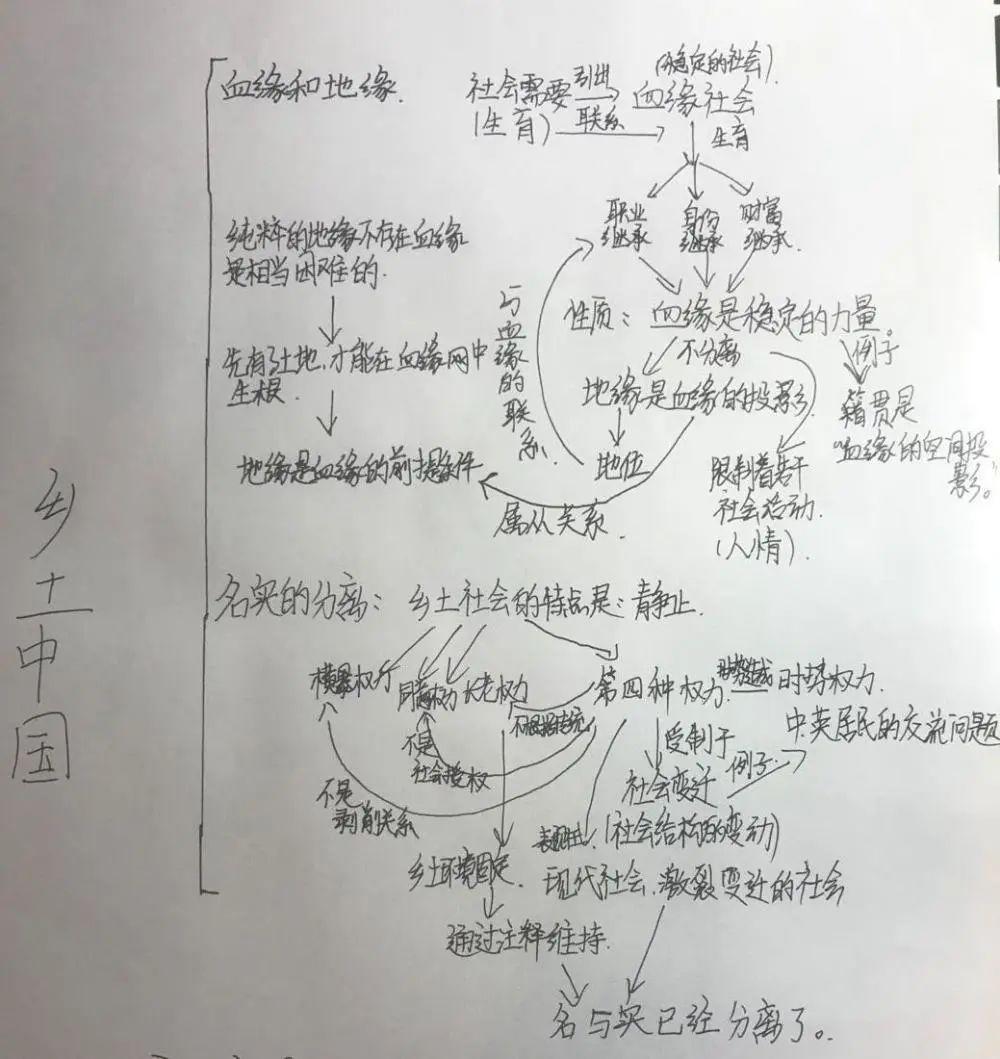 乡土中国
血缘和地缘.
(稳定的社会)
社会需要 引出 血缘社会
(生育) 联系
生育
职业继承
身份继承
财富继承.
性质：血缘是稳定的力量。
不分离
例子
地缘是血缘的投影.
籍贯是
"血缘的空间投
影。"
与血缘的联系.
地位
限制着若干
社会活动.
(人情).
纯粹的地缘不存在血缘
是相当困难的.
先有了土地,才能在血缘网中
生根.
地缘是血缘的前提条件
属从关系.
名实的分离：乡土社会的特点是：静止.
横暴权力
同意权力
长老权力
第四种权力
时势权力.
不是
社会授权
不是
剥削关系
受制于
社会变迁
例子：
中英居民的交流问题
(社会结构的变动)
乡土环境固定.
现代社会.激裂变迁的社会
通过注释维持.
名与实已经分离了。